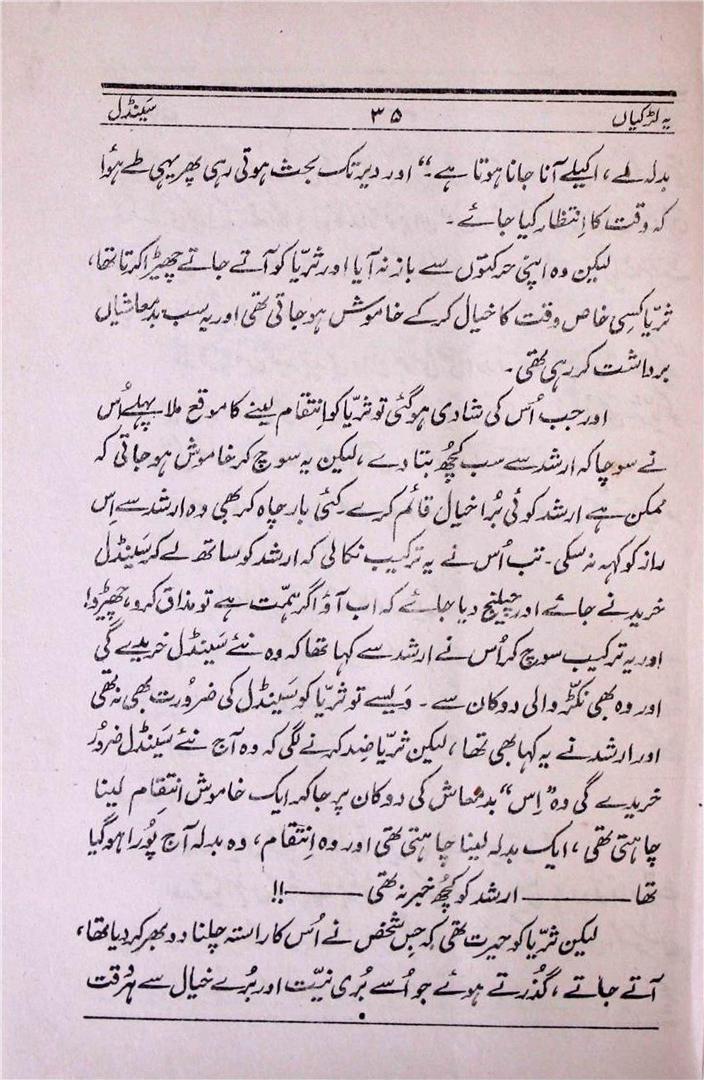 یہ لڑکیاں ۳۵ سَینڈل
بدلہ لے، اکیلے آنا جانا ہوتا ہے۔“ اور دیر تک بحث ہوتی رہی پھر یہی طے ہؤا
کہ وقت کا اِنتظار کیا جائے۔
لیکن وہ اپنی حرکتوں سے باز نہ آیا اور ثریّا کو آتے جاتے چھیڑا کرتا تھا،
ثریّا کسِی خاص وقت کا خیال کرکے خاموش ہوجاتی تھی اور یہ سب بدمعاشیاں
برداشت کر رہی تھی۔
اور جب اُس کی شادی ہوگئی تو ثریّا کو اِنتقام لینے کا موقع ملا پہلے اُس
نے سوچا کہ ارشد سے سب کچھُ بتا دے، لیکن یہ سوچ کر خاموش ہوجاتی کہ
ممکن ہے ارشد کوئی بُرا خیال قائم کرے۔ کئی بار چاہ کر بھی وہ ارشد سے اِس
راز کو کہہ نہ سکی۔ تب اُس نے یہ ترکیب نکالی کہ ارشد کو ساتھ لے کر سَینڈل
خریدنے جائے اور چیلنج دیا جائے کہ اب آؤ اگر ہمّت ہے تو مذاق کرو، چھیڑو!
اور یہ ترکیب سوچ کر اُس نے ارشد سے کہا تھا کہ وہ نئے سَینڈل خریدے گی
اور وہ بھی نکڑّ والی دوکان سے۔ وَیسے تو ثریّا کو سَینڈل کی ضرُورت بھی نہ تھی
اور ارشد نے یہ کہا بھی تھا، لیکن ثریّا ضِد کرنے لگی کہ وہ آج نئے سَینڈل ضرُور
خریدے گی وہ ”اِس“ بدمعاش کی دوکان پر جاکر ایک خاموش انتقِام لینا
چاہتی تھی، ایک بدلہ لینا چاہتی تھی اور وہ اِنتقام، وہ بدلہ آج پُورا ہوگیا
تھا ——— ارشد کو کچھُ خبر نہ تھی ———!!
لیکن ثریّا کو حیرت تھی کہ جِس شخص نے اُس کا راستہ چلنا دوبھر کر دیا تھا،
آتے جاتے، گُذرتے ہوئے جو اُسے بُری نیّت اور بُرے خیال سے ہر وقت